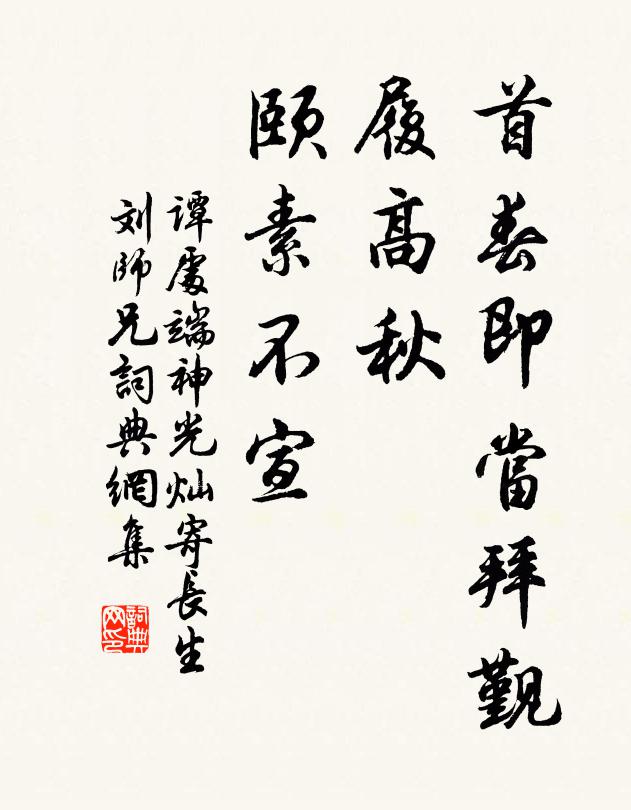 首春即當拜覲
履高秋
頤素不宣
譚處端神光灿寄長生
刘師兄詞典網集
詞典网印